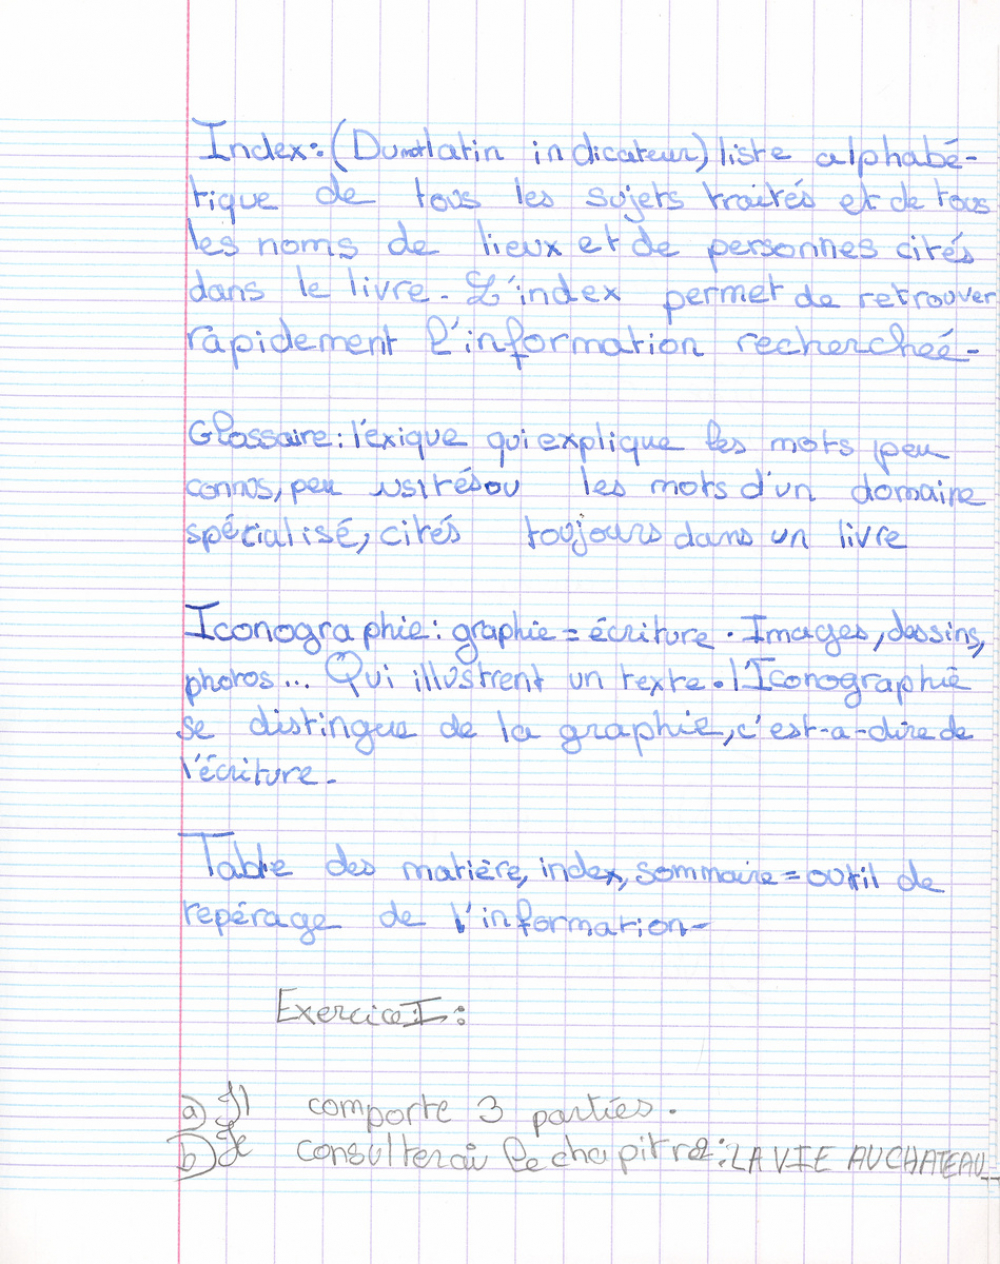 Index: (Du mot latin indicateur) liste alphabé-
tique de tous les sujets traités et de tous
les noms de lieux et de personnes cités
dans le livre. L'index permet de retrouver
rapidement l'information rechercheé.
Glossaire: l'exique qui explique les mots peu
connus, peu usités ou les mots d'un domaine
spécialisé, cités toujours dans un livre
Iconographie: graphie = écriture. Images, dessins,
photos... Qui illustrent un texte. l'Iconographie
se distingue de la graphie, c'est-a-dire de
l'écriture.
Table des matière, index, sommaire = outil de
repérage de l'information-
Exercice I:
a) Il comporte 3 parties.
b) Je consulterai le chapitre 2: LA VIE AU CHATEAU